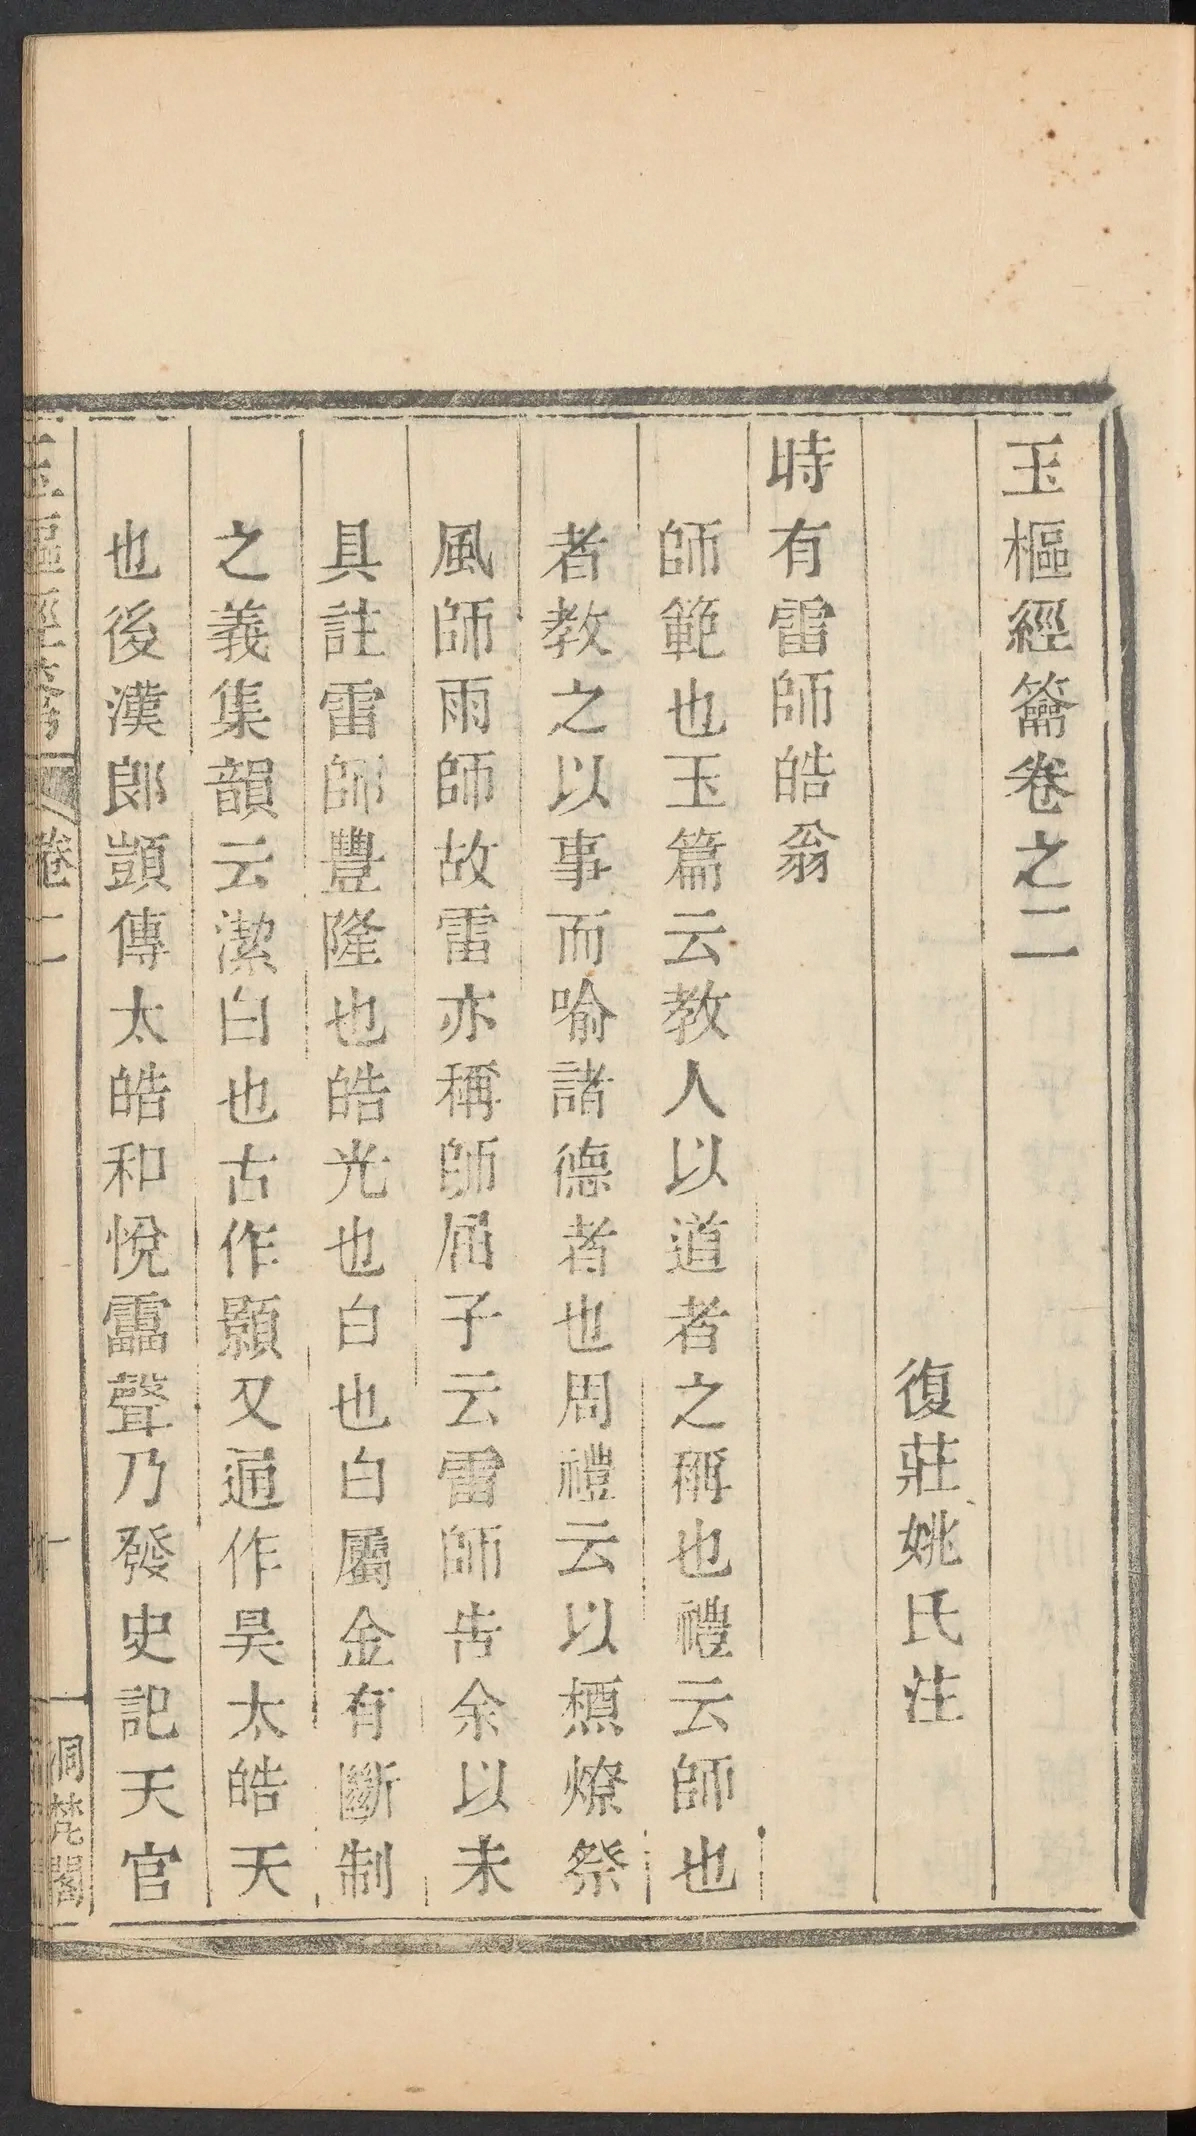 玉樞經籥卷之二
復莊姚氏注
時有雷師皓翁
師範也玉篇云教人以道者之稱也禮云師也
者教之以事而喻諸德者也周禮云以槱燎祭
風師雨師故雷亦稱師屈子云雷師告余以未
具註雷師豐隆也皓光也白也白屬金有斷制
之義集韻云潔白也古作顥又通作昊太皓天
也後漢郎顗傳太皓和悅靁聲乃發史記天官
玉樞經籥 卷二 一 洞梵閣